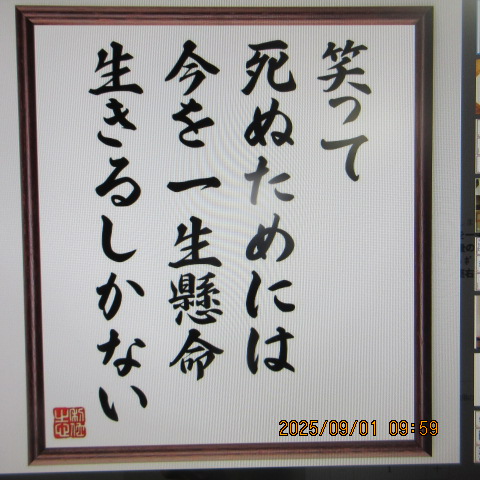 笑って
死ぬためには
今を一生懸命
生きるしかない
2025/09/01 09:59